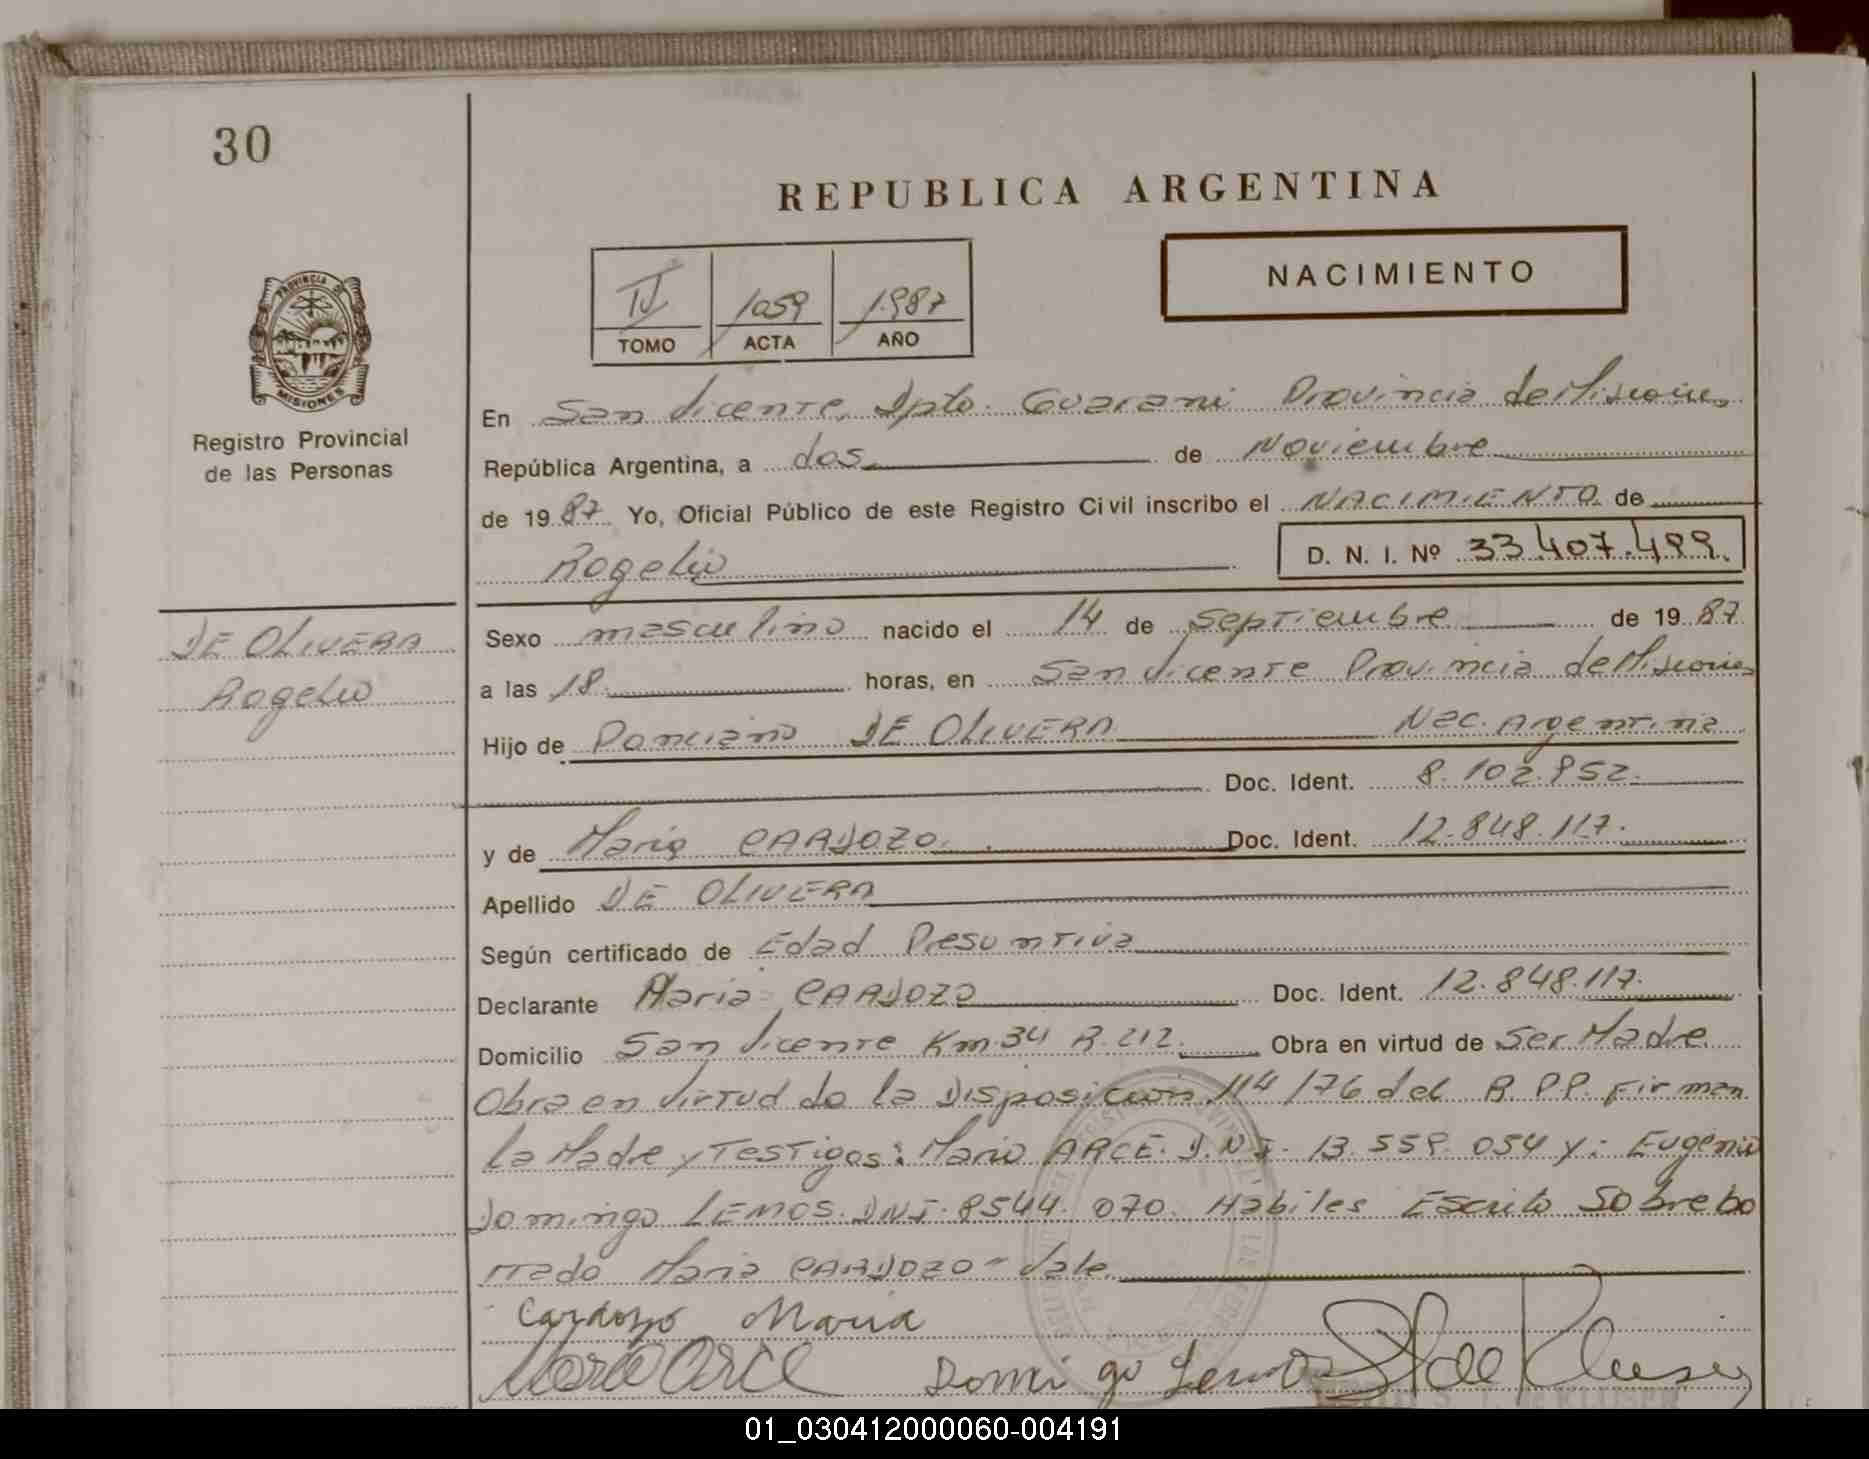 30
REPUBLICA ARGENTINA
NACIMIENTO
IV 1059 1.987
TOMO ACTA AÑO
PROVINCIA DE
MISIONES
Registro Provincial
de las Personas
En San Vicente, Dpto. Guarani Provincia de Misiones
República Argentina, a dos de Noviembre
de 1987 Yo, Oficial Público de este Registro Civil inscribo el NACIMIENTO de
Rogelio D. N. I. Nº 33.407.499.
DE OLIVERA
Rogelio
Sexo masculino nacido el 14 de Septiembre de 1987
a las 18 horas, en San Vicente Provincia de Misiones
Hijo de Ponciano DE OLIVERA Nac. Argentina
Doc. Ident. 8.102.952.
y de Maria CARDOZO. Doc. Ident. 12.848.117.
Apellido DE OLIVERA
Según certificado de Edad Presuntiva
Declarante Maria CARDOZO Doc. Ident. 12.848.117.
Domicilio San Vicente Km 34 R. 212. Obra en virtud de Ser Madre.
Obra en virtud do la Disposición 114/76 del R. P.P. Firman
La Madre y Testigos: Mario ARCE. D.N.I. 13.559.054 y: Eugenio
Domingo LEMOS. DNI. 8544.070. Habiles Escrito Sobre bo
rrado Maria CARDOZO - Vale.
Cardozo Maria
Mario Arce Domingo Lemos
01_030412000060-004191